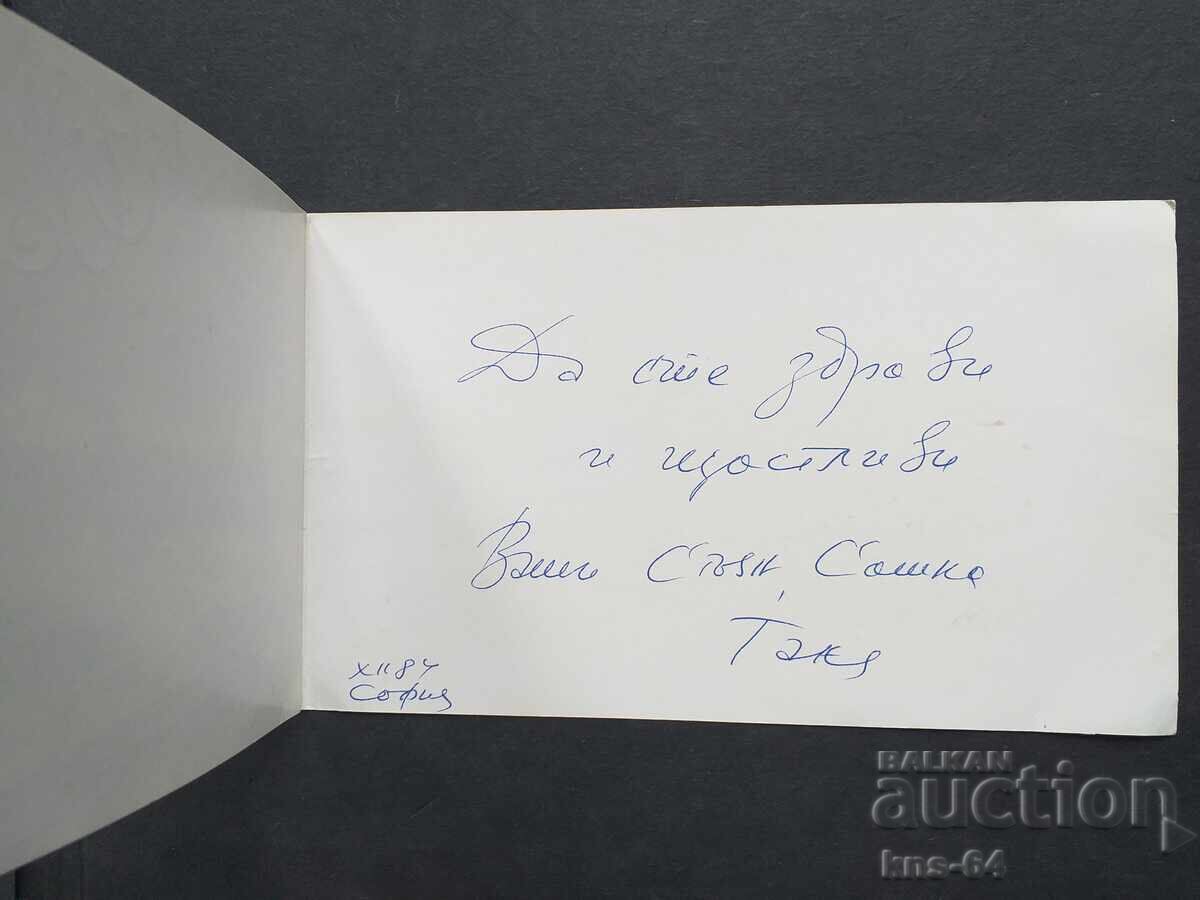 Да сте здрави
и щастливи
Ваши Стоян, Сашка
Таня
XII 84
София
BALKAN
auction
kns-64